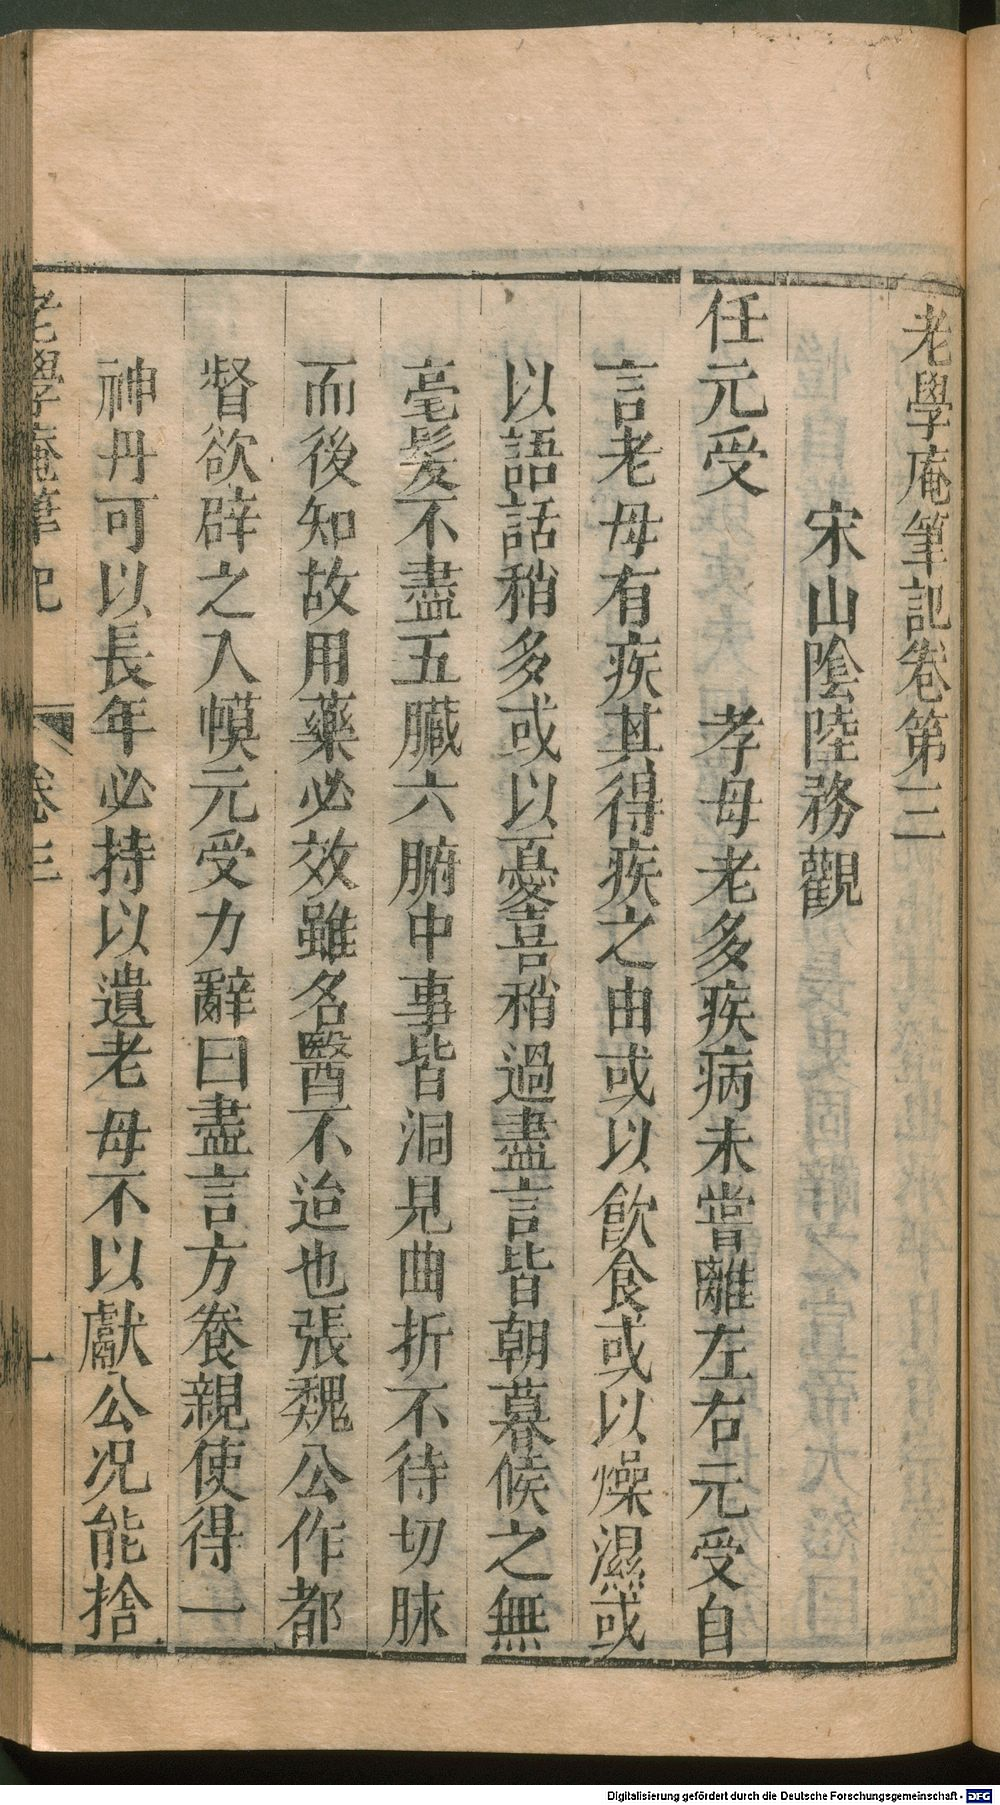 老學庵筆記卷第三
宋山陰陸務觀
任元受　　　孝母老多疾病未嘗離左右元受自
言老母有疾其得疾之由或以飮食或以燥濕或
以語話稍多或以憂喜稍過盡言皆朝暮候之無
毫髮不盡五臟六腑中事皆洞見曲折不待切脉
而後知故用藥必效雖名醫不迨也張魏公作都
督欲辟之入幙元受力辭曰盡言方養親使得一
神丹可以長年必持以遺老母不以獻公况能捨
老學庵筆記　卷三　一
Digitalisierung gefördert durch die Deutsche Forschungsgemeinschaft - DFG